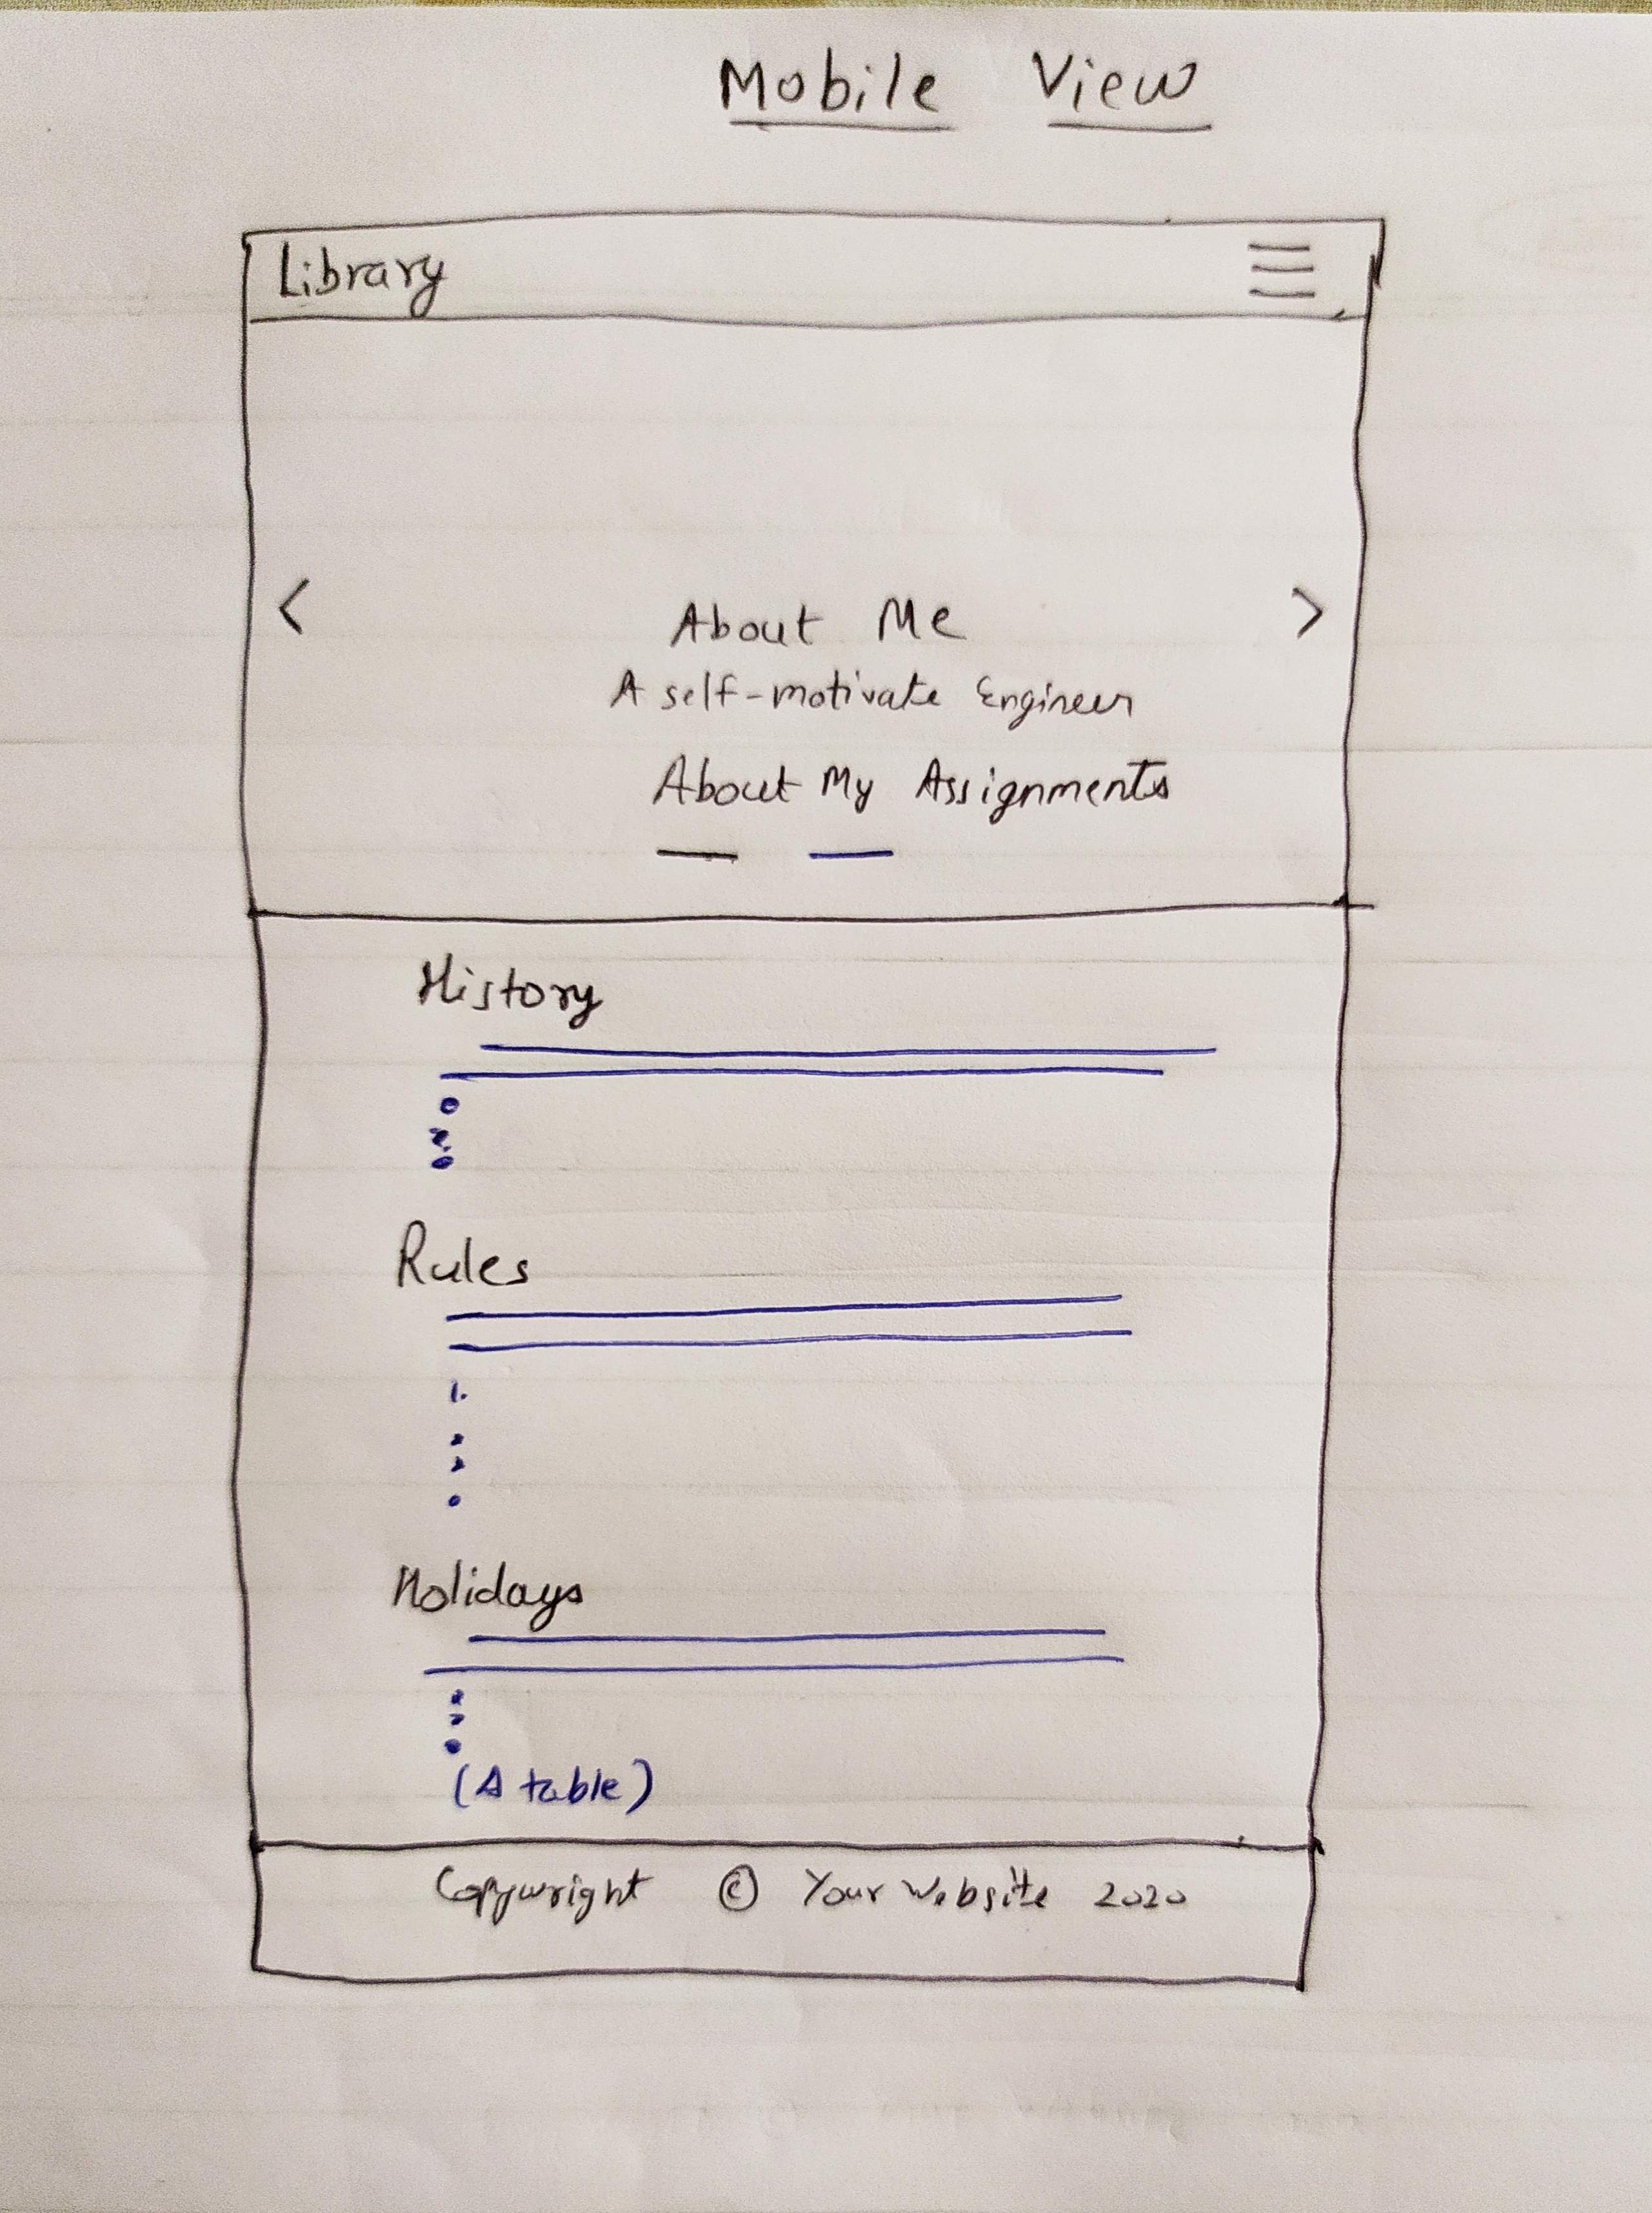 Mobile View
Library
< >
About Me
A self-motivate Engineer
About My Assignments
History
Rules
1.
Holidays
(A table)
Copywright © Your Website 2020